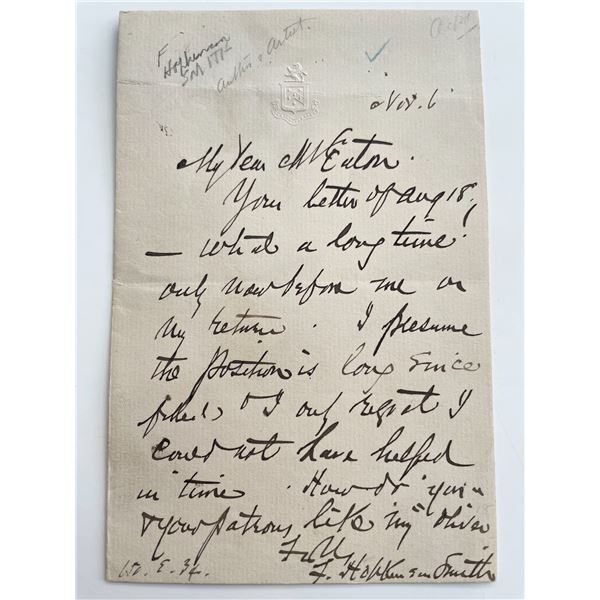 F.
Hopkinson
Smith
Author & Artist.
Nov. 6
My Dear Mr Eaton.
Your letter of Aug 18,
— what a long time!
only now before me on
my return. I presume
the position is long since
filled & I only regret I
could not have helped
in time. How do you
& your patrons like my Oliver
F. Hopkinson Smith
150. E. 34.